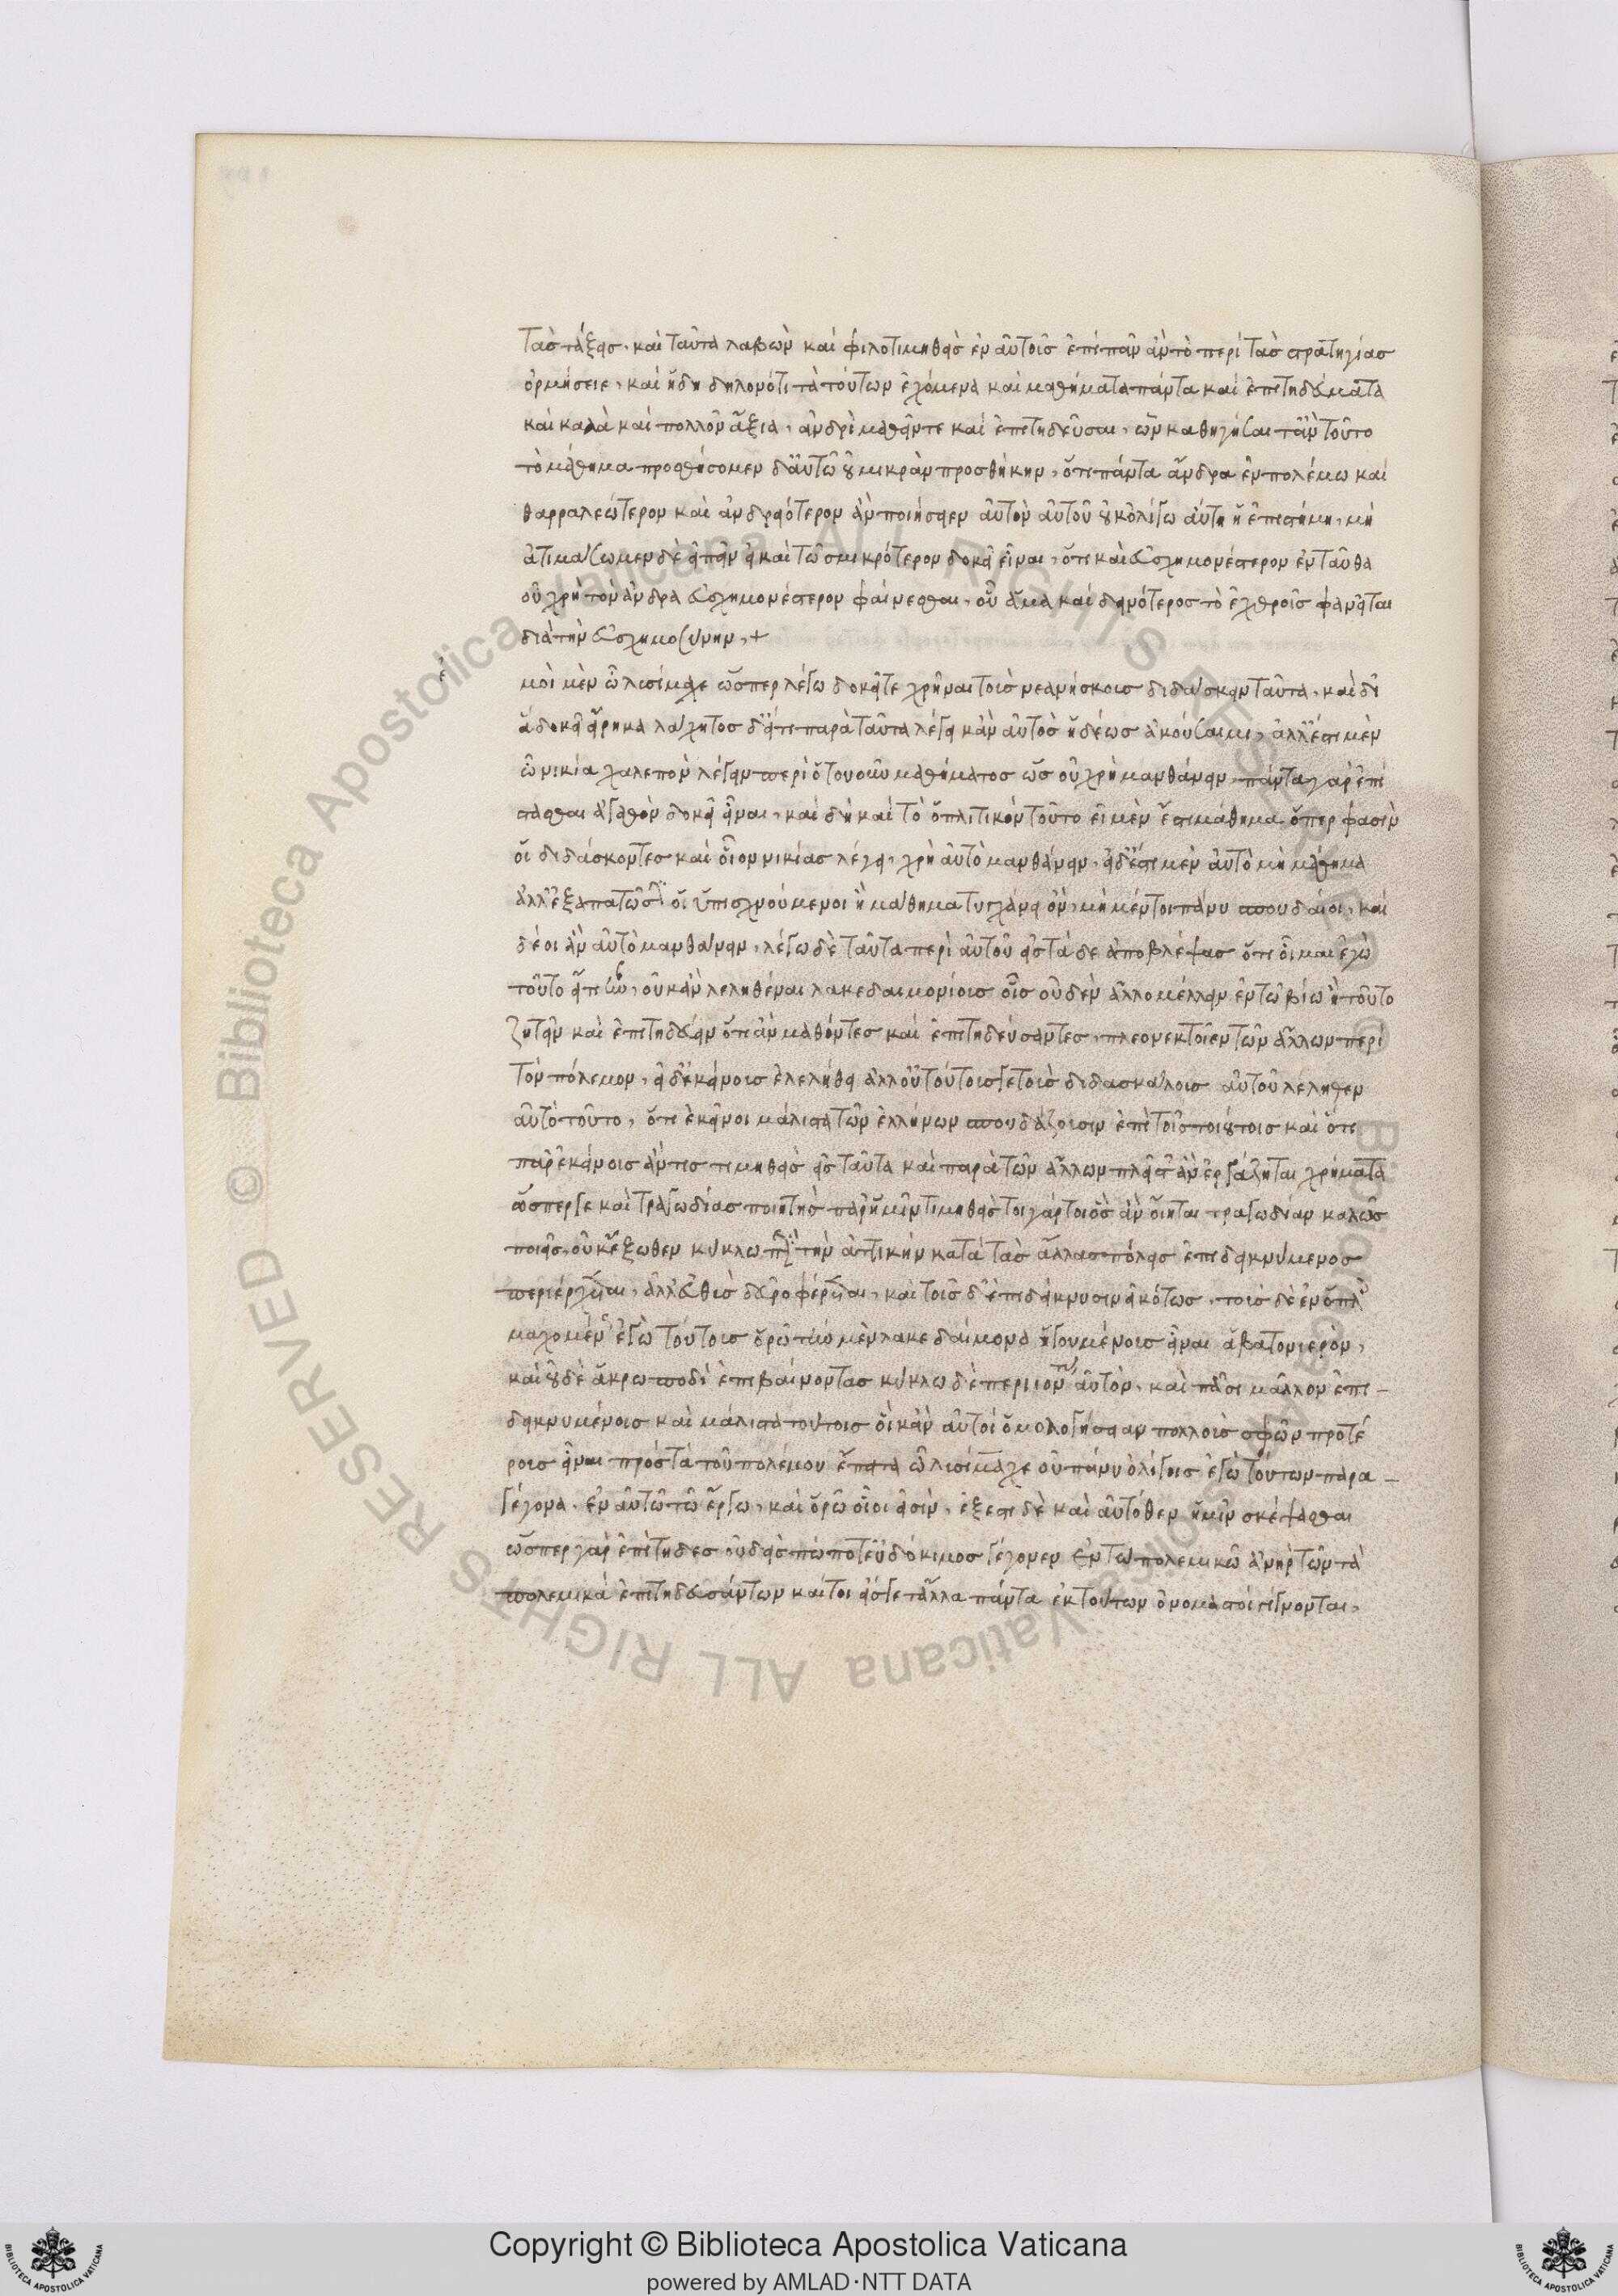 τὰσ τάξεισ. καὶ ταῦτα λαβὼν καὶ φιλοτιμηθεὶσ ἐν αὐτοῖσ ἐπὶ πᾶν ἂν τὸ περὶ τὰσ στρατηγίασ
ὁρμήσειε. καὶ ἤδη δηλονότι τὰ τούτων ἐχόμενα καὶ μαθήματα πάντα καὶ ἐπιτηδεύματα
καὶ καλὰ καὶ πολλοῦ ἄξια. ἀνδρὶ μαθεῖν τε καὶ ἐπιτηδεῦσαι. ὧν καθηγήσαιτ' ἂν τοῦτο
τὸ μάθημα προσθήσομεν δ' αὐτῶ οὐ μικρὰν προσθήκην, ὅτι πάντα ἄνδρα ἐν πολέμω καὶ
θαρραλεώτερον καὶ ἀνδρειότερον ἂν ποιήσειεν αὐτὸν αὑτοῦ οὐκ ὀλίγω αὕτη ἡ ἐπιστήμη, μὴ
ἀτιμάζωμεν δὲ εἰπεῖν εἰ καί τω σμικρότερον δοκεῖ εἶναι, ὅτι καὶ εὐσχημονέστερον ἐνταῦθα
οὗ χρὴ τὸν ἄνδρα εὐσχημονέστερον φαίνεσθαι, οὗ ἅμα καὶ δεινότεροσ τὸ ἐχθροῖσ φανεῖται
διὰ τὴν εὐσχημοσύνην, +
ἐ
μοὶ μὲν ὦ λυσίμαχε ὥσπερ λέγω δοκεῖ τε χρῆναι τοὺσ νεανίσκουσ διδάσκειν ταῦτα. καὶ δι'
ἃ δοκεῖ εἴρηκα λάχητοσ δ' εἴ τι παρὰ ταῦτα λέγει κἂν αὐτὸσ ἡδέωσ ἀκούσαιμι, ἀλλ' ἔστι μὲν
ὦ νικία χαλεπὸν λέγειν περὶ ὁτουοῦν μαθήματοσ ὡσ οὐ χρὴ μανθάνειν. πάντα γὰρ ἐπί
στασθαι ἀγαθὸν δοκεῖ εἶναι. καὶ δὴ καὶ τὸ ὁπλιτικὸν τοῦτο εἰ μὲν ἔστι μάθημα ὅπερ φασὶν
οἱ διδάσκοντεσ καὶ οἷον νικίασ λέγει, χρὴ αὐτὸ μανθάνειν. εἰ δ' ἔστι μὲν αὐτὸ μὴ μάθημα
ἀλλ' ἐξαπατῶσιν οἱ ὑπισχνούμενοι ἢ μάθημα τυγχάνει ὄν, μὴ μέντοι πάνυ σπουδαῖον, καὶ
δέοι ἂν αὐτὸ μανθάνειν. λέγω δὲ ταῦτα περὶ αὐτοῦ εἰσ τάδε ἀποβλέψασ ὅτι οἶμαι ἐγὼ
τοῦτο εἴ τι ἦν, οὐκ ἂν λεληθέναι λακεδαιμονίουσ οἷσ οὐδὲν ἄλλο μέλλειν ἐν τῶ βίω ἢ τοῦτο
ζητεῖν καὶ ἐπιτηδεύειν ὅτι ἂν μαθόντεσ καὶ ἐπιτηδεύσαντεσ, πλεονεκτοῖεν τῶν ἄλλων περὶ
τὸν πόλεμον. εἰ δ' ἐκείνουσ ἐλελήθει ἀλλ' οὐ τούτουσ γε τοὺσ διδασκάλουσ αὐτοῦ λέληθεν
αὐτὸ τοῦτο, ὅτι ἐκεῖνοι μάλιστα τῶν ἑλλήνων σπουδάζουσιν ἐπὶ τοῖσ τοιούτοισ καὶ ὅτι
παρ' ἐκείνοισ ἄν τισ τιμηθεὶσ εἰσ ταῦτα καὶ παρὰ τῶν ἄλλων πλεῖστ' ἂν ἐργάζηται χρήματα
ὥσπερ γε καὶ τραγωδίασ ποιητὴσ παρ' ἡμῖν τιμηθεὶσ τοιγάρτοι ὃσ ἂν οἴηται τραγωδίαν καλῶσ
ποιεῖν, οὐκ ἔξωθεν κύκλω περὶ τὴν ἀττικὴν κατὰ τὰσ ἄλλασ πόλεισ ἐπιδεικνύμενοσ
περιέρχεται, ἀλλ' εὐθὺσ δεῦρο φέρεται, καὶ τοῖσ δ' ἐπιδείκνυσιν εἰκότωσ. τοὺσ δὲ ἐν ὅπλοισ
μαχομένουσ ἐγὼ τούτουσ ὁρῶ τὴν μὲν λακεδαίμονα ἡγουμένουσ εἶναι ἄβατον ἱερὸν,
καὶ οὐδὲ ἄκρω ποδὶ ἐπιβαίνοντασ κύκλω δὲ περιιόντασ αὐτὸν. καὶ πᾶσι μᾶλλον ἐπι-
δεικνυμένουσ καὶ μάλιστα τούτοισ οἳ κἂν αὐτοὶ ὁμολογήσειαν πολλοὺσ σφῶν προτέ
ρουσ εἶναι πρὸσ τὰ τοῦ πολέμου ἔπειτα ὦ λυσίμαχε οὐ πάνυ ὀλίγοισ ἐγὼ τούτων παρα-
γέγονα. ἐν αὐτῶ τῶ ἔργω, καὶ ὁρῶ οἷοι εἰσὶν. ἔξεστι δὲ καὶ αὐτόθεν ἡμῖν σκέψασθαι
ὥσπερ γὰρ ἐπίτηδεσ οὐδεὶσ πώποτ' εὐδόκιμοσ γέγονεν ἐν τῶ πολεμικῶ ἀνὴρ τῶν τὰ
πολεμικὰ ἐπιτηδευσάντων καίτοι εἴσ γε τἄλλα πάντα ἐκ τούτων ὀνομαστοὶ γίγνονται,